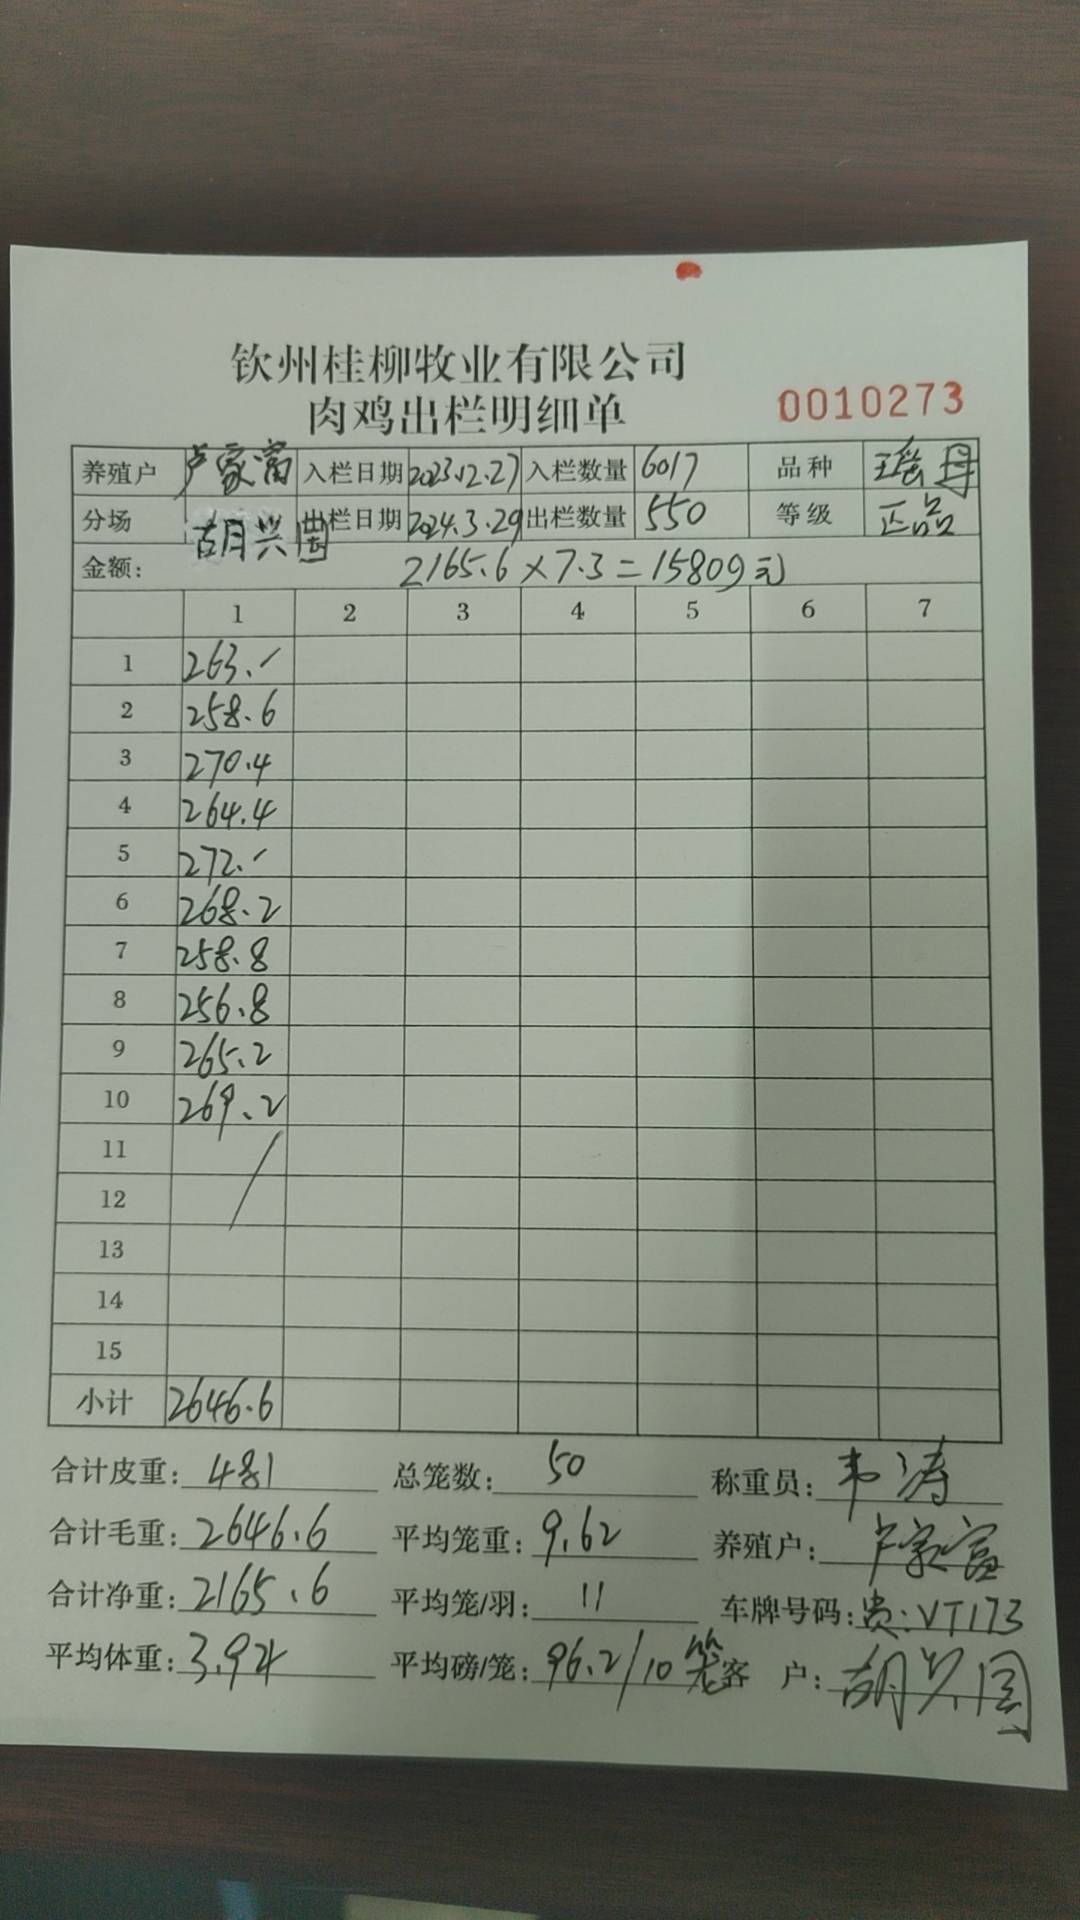 钦州桂柳牧业有限公司
肉鸡出栏明细单
0010273
养殖户 卢家富 入栏日期 2023.12.27 入栏数量 6017 品种 瑶丹
分场 胡兴国 出栏日期 2024.3.29 出栏数量 550 等级 正品
金额: 2165.6×7.3=15809元
1 2 3 4 5 6 7
1 263.-
2 258.6
3 270.4
4 264.4
5 272.-
6 268.2
7 258.8
8 256.8
9 265.2
10 269.2
11
12
13
14
15
小计 2646.6
合计皮重: 481 总笼数: 50 称重员: 韦涛
合计毛重: 2646.6 平均笼重: 9.62 养殖户: 卢家富
合计净重: 2165.6 平均笼/羽: 11 车牌号码: 贵·VT173
平均体重: 3.94 平均磅/笼: 96.2/10笼 客 户: 胡兴国